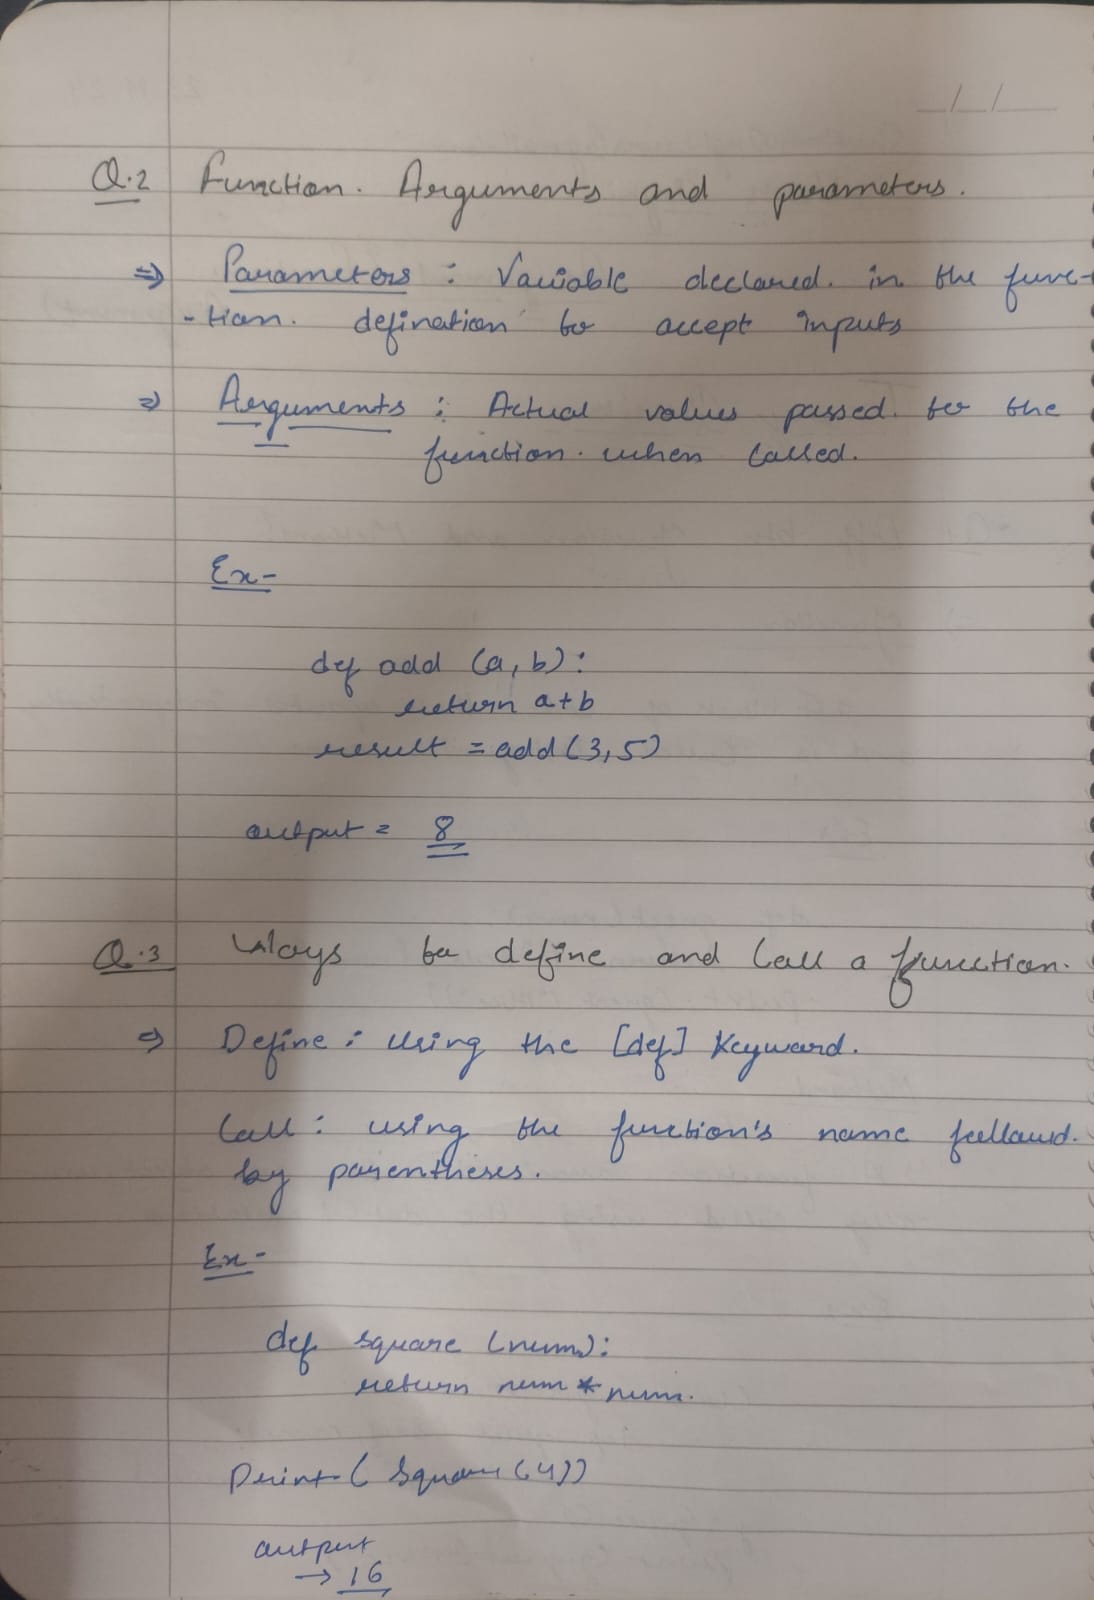 __/__/____
Q.2 Function. Arguments and parameters.
⇒ Parameters : Variable declared. in the func-
- tion. defination to accept inputs
⇒ Arguments : Actual values passed. to the
function. when called.
Ex -
def add (a, b) :
return a+b
result = add (3, 5)
output = 8
Q.3 Ways to define and call a function.
⇒ Define : Using the [def] Keyword.
Call : using the function's name followed.
by parentheses.
Ex -
def square (num) :
return num * num.
Print ( Square (4))
output
→ 16